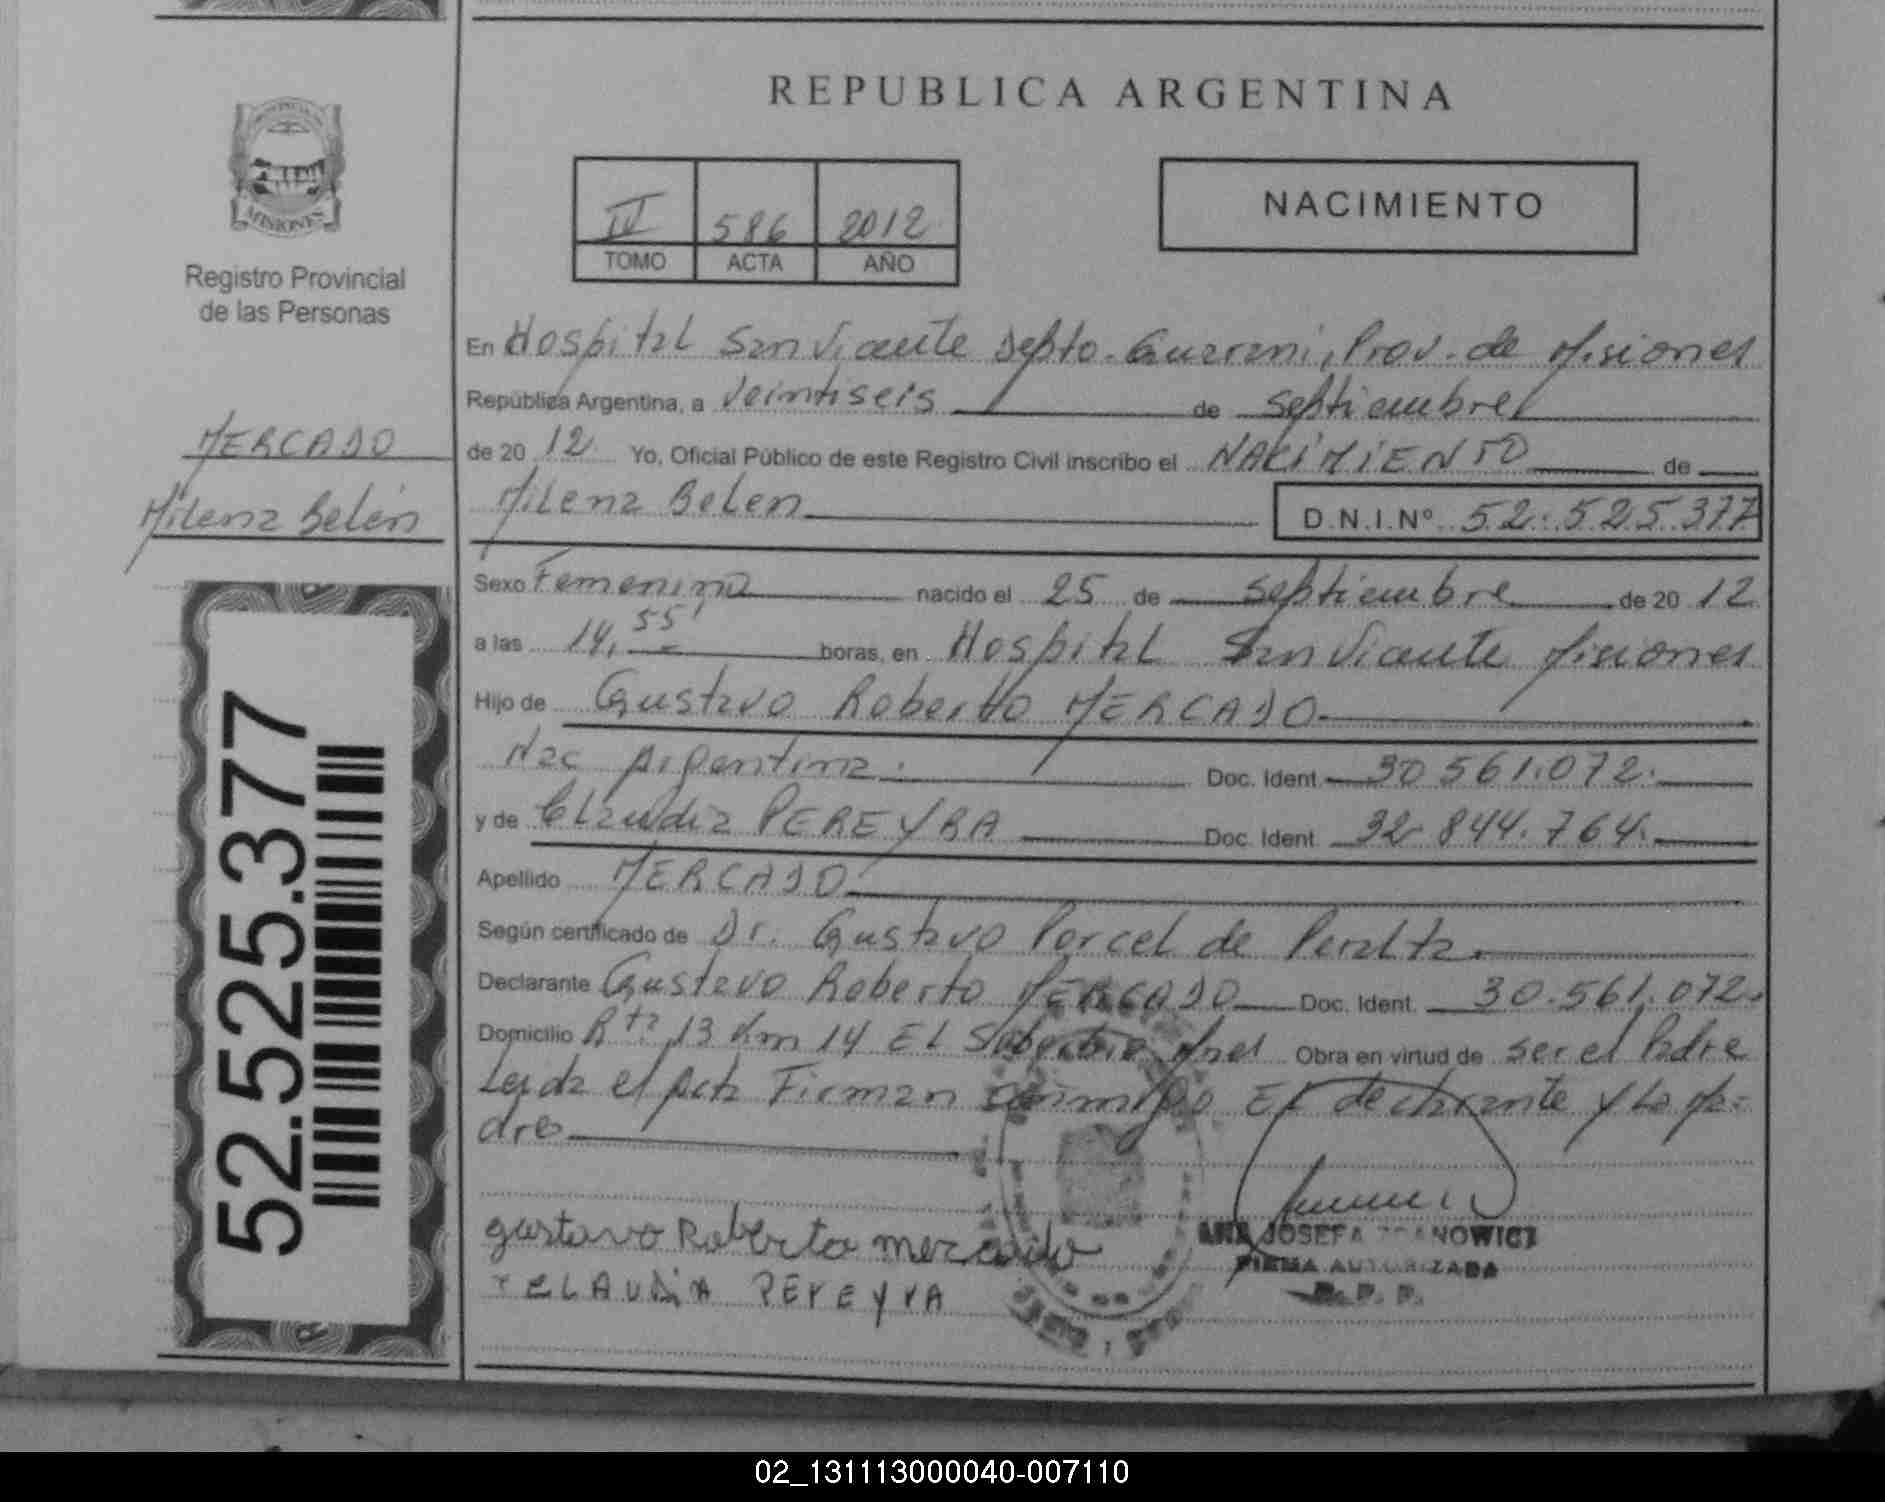 REPUBLICA ARGENTINA
MISIONES
Registro Provincial
de las Personas
586 2012
TOMO ACTA AÑO
NACIMIENTO
MERCADO
Milena Belén
52.525.377
En Hospital San Vicente Depto. Guarani, Prov. de Misiones
República Argentina, a Veintiseis de septiembre
de 20 12 Yo, Oficial Público de este Registro Civil inscribo el NACIMIENTO de
Milena Belen D.N.I.Nº 52.525.377
Sexo Femenino nacido el 25 de septiembre de 20 12
a las 14,55' horas, en Hospital San Vicente Misiones
Hijo de Gustavo Roberto MERCADO
Nac Argentina. Doc. Ident. 30 561.072.
y de Claudia PEREYRA Doc. Ident. 32.844.764.
Apellido MERCADO
Según certificado de Dr. Gustavo Porcel de Peralta.
Declarante Gustavo Roberto MERCADO Doc. Ident. 30.561.072.
Domicilio Rta 13 Km 14 El Soberbio Mnes Obra en virtud de ser el Padre
Leida el Acta Firman conmigo El declarante y La Ma=
dre
gustavo Roberto mercado
CLAUDIA PEREYRA
JOSEFA
FIRMA AUTORIZADA
R. P. P.
02_131113000040-007110